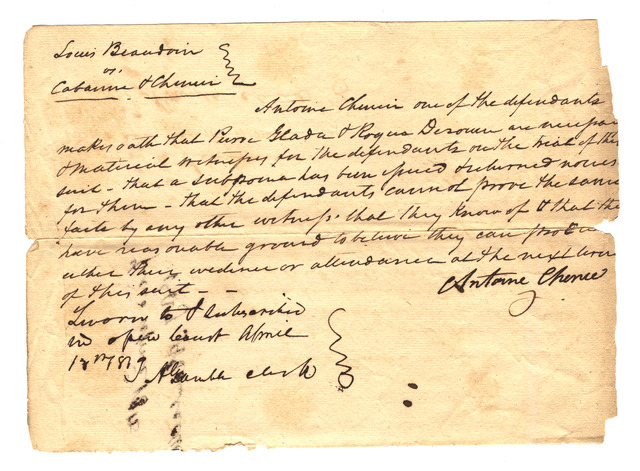 Louis Beaudoin
vs
Cabanne & Chenie
Antoine Chenie one of the defendants
makes oath that Pierre Glada & Rogue are
& material witnesses for the defendants on the trial of this
suit - that a subpoena has been issued & returned
for them - that the defendants cannot prove the same
facts by any other witness that they know of & that they
have reasonable ground to believe they can
either their evidence or attendance at the next
of this suit -
Antoine Chenie
Sworn to & subscribed
in open Court April
1819
A Gamble Clerk